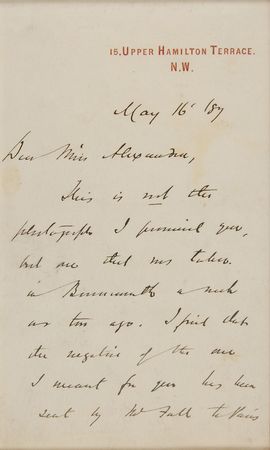 15, UPPER HAMILTON TERRACE.
N.W.
May 16 '87
Dear Miss Alexander,
This is not the
photograph I promised you,
but one that was taken
in Bournemouth a week
or two ago. I find that
the negative of the one
I meant for you has been
sent by Mr Fall to Paris